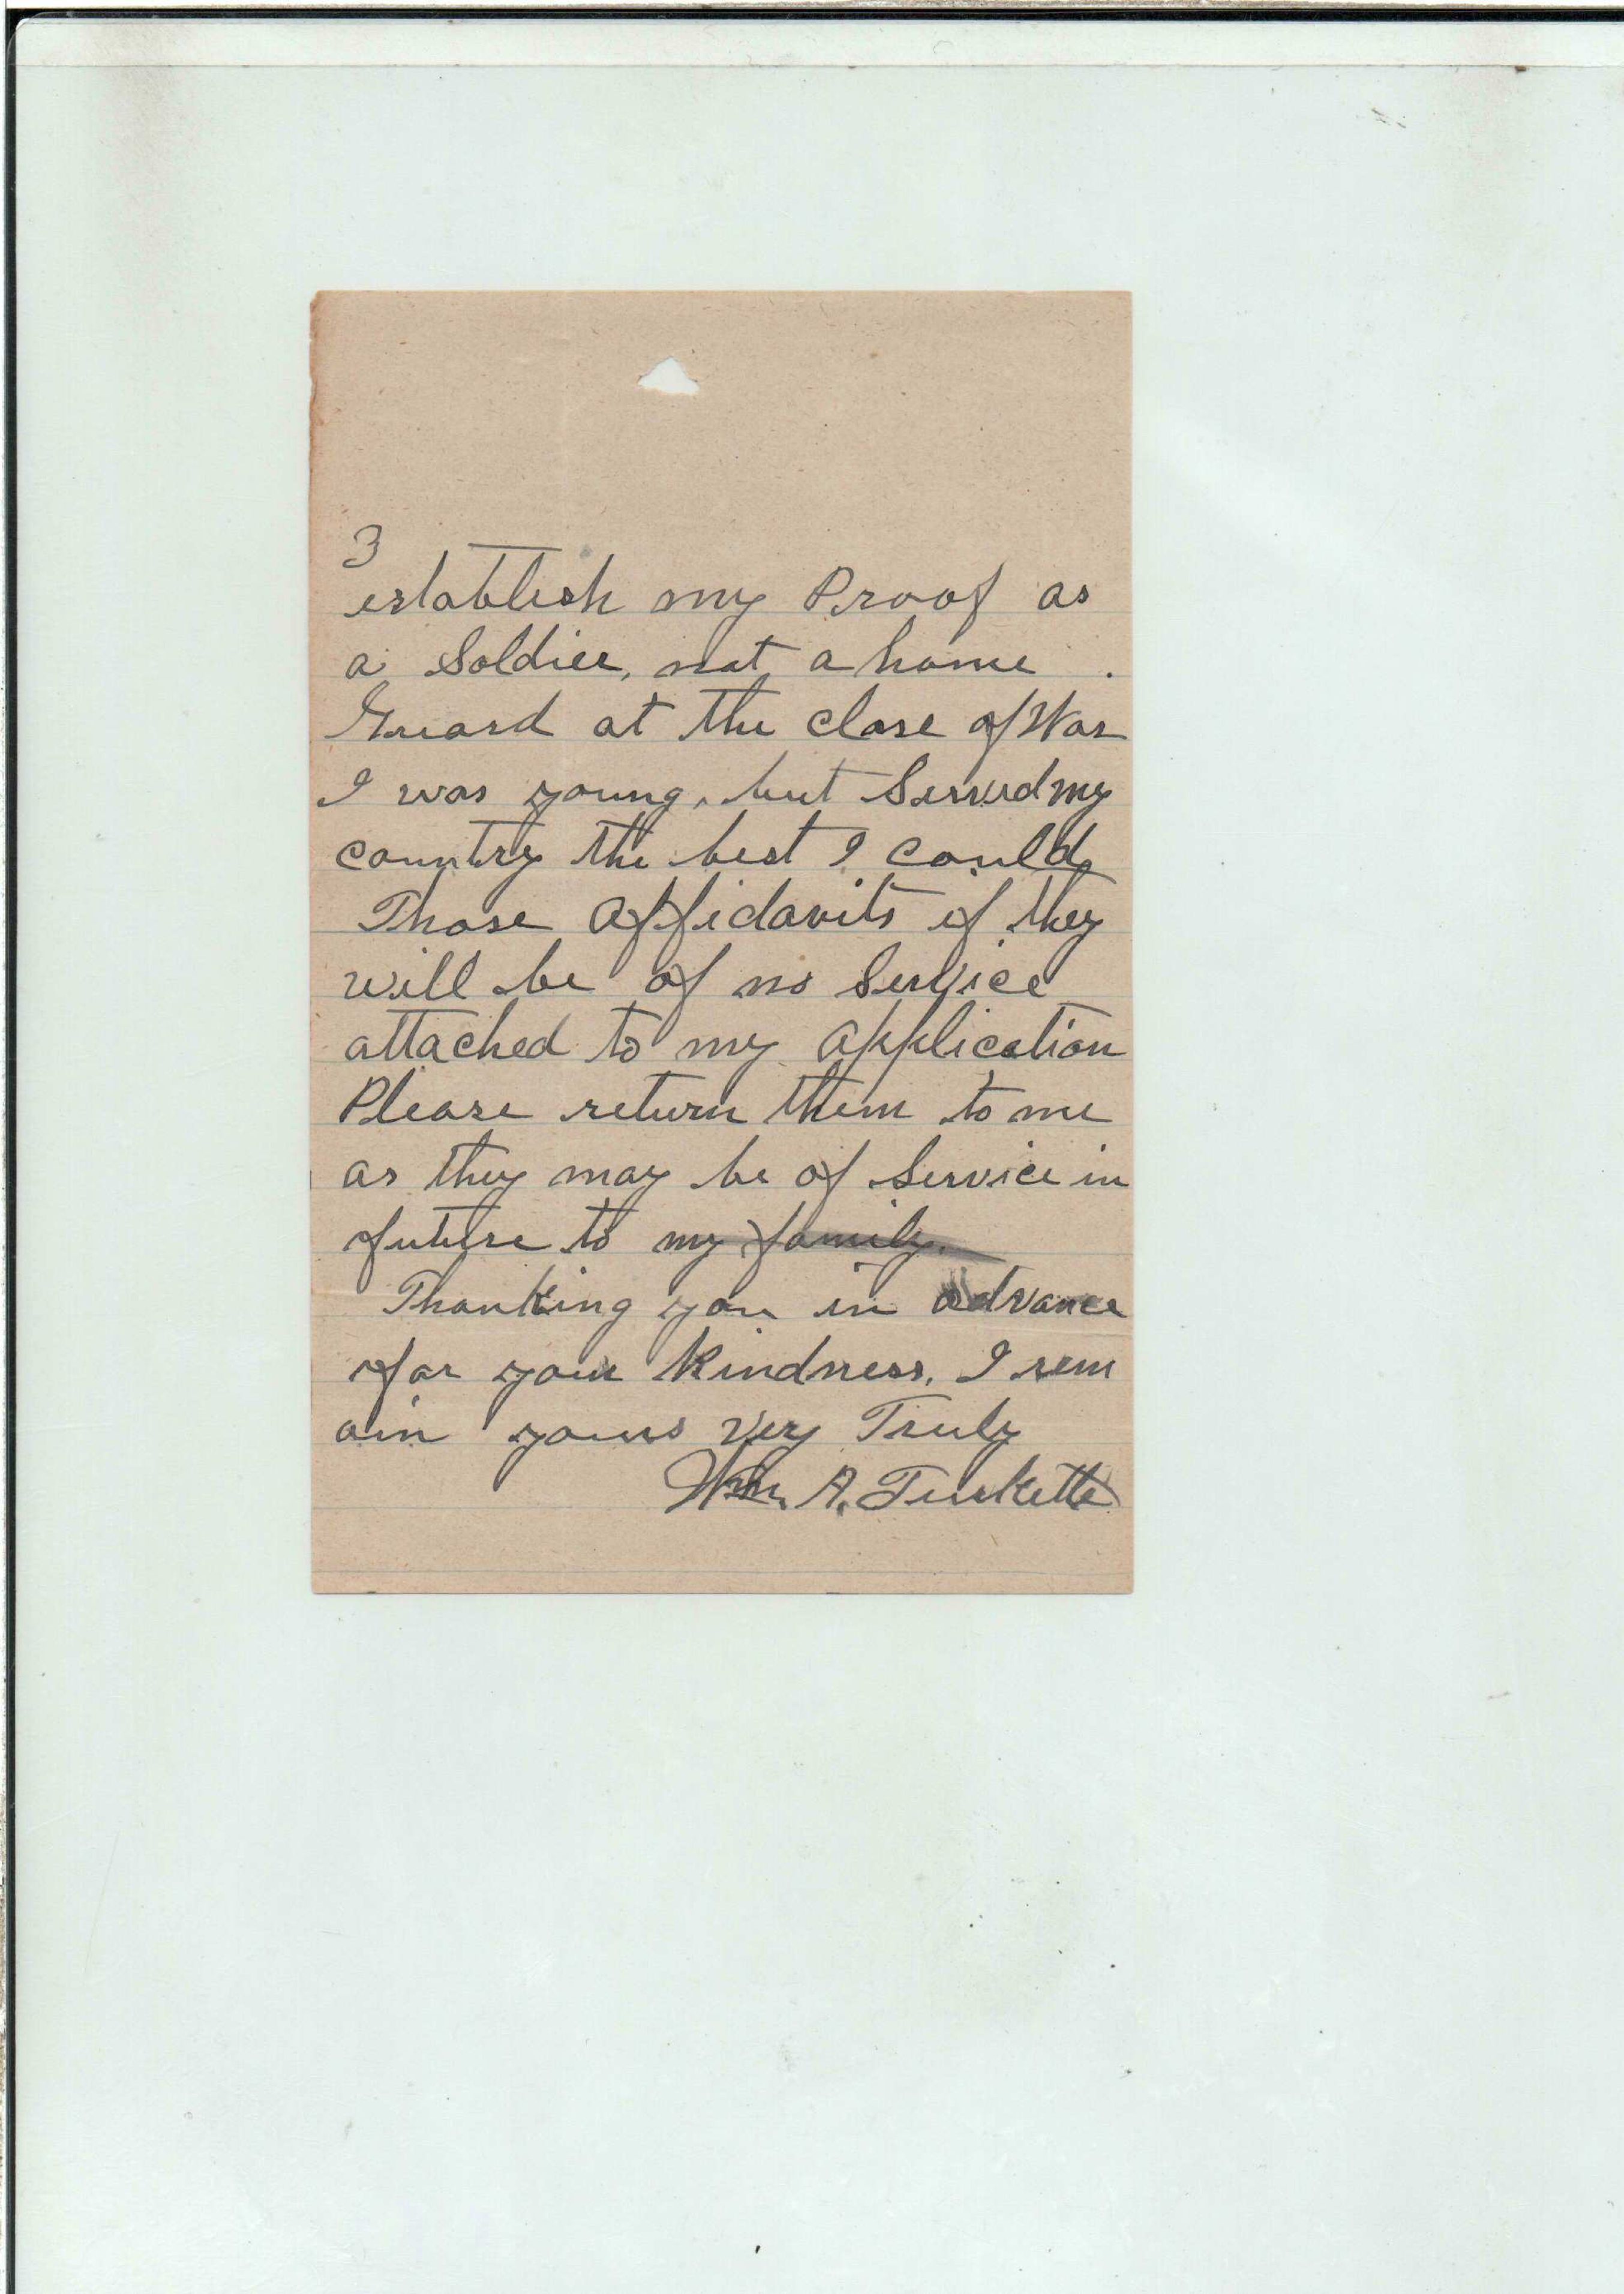 3
establish my Proof as
a Soldier, not a home .
Guard at the close of War
I was young, but Served my
country the best I could
Those Affidavits if they
will be of no Service
attached to my application
Please return them to me
as they may be of Service in
future to my family.
Thanking you in advance
for your Kindness. I rem
ain yours Very Truly
Wm. A.